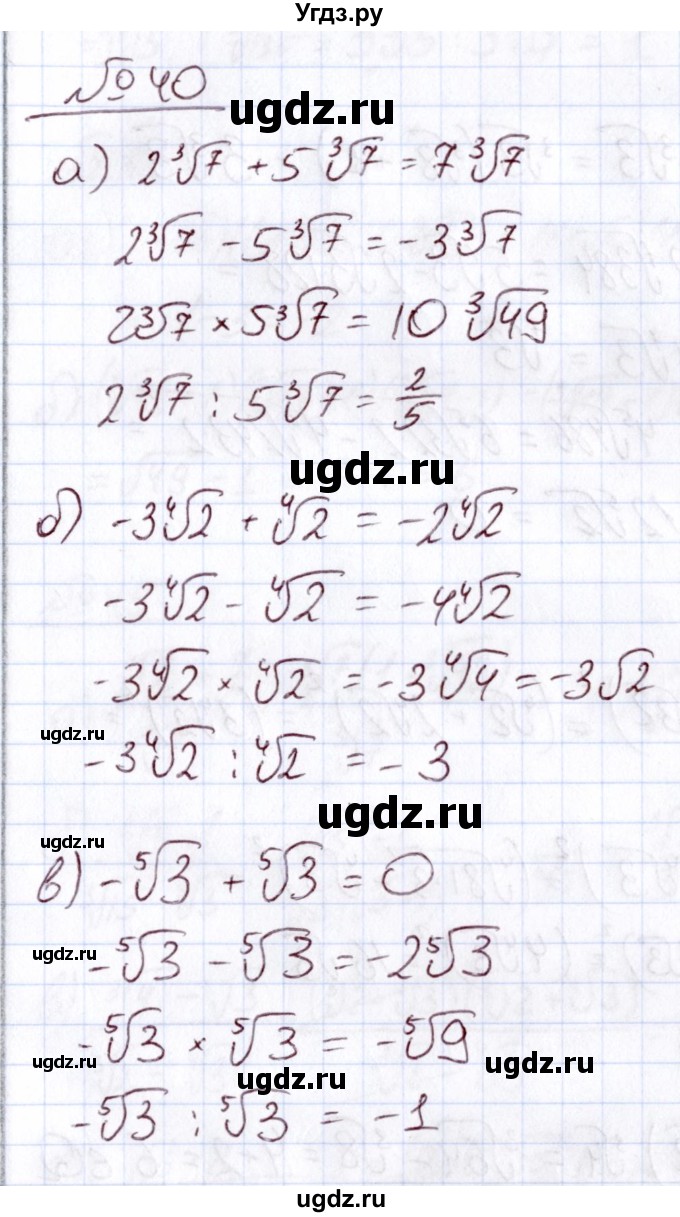 Угдз.ру
№ 40
ugdz.ru
а) 2∛7 + 5∛7 = 7∛7
2∛7 - 5∛7 = -3∛7
2∛7 × 5∛7 = 10∛49
2∛7 : 5∛7 = 2/5
ugdz.ru
б) -3∜2 + ∜2 = -2∜2
-3∜2 - ∜2 = -4∜2
-3∜2 × ∜2 = -3∜4 = -3√2
ugdz.ru
-3∜2 : ∜2 = -3
ugdz.ru
ugdz.ru
в) -⁵√3 + ⁵√3 = 0
ugdz.ru
-⁵√3 - ⁵√3 = -2⁵√3
-⁵√3 × ⁵√3 = -⁵√9
ugdz.ru
ugdz.ru
ugdz.ru
-⁵√3 : ⁵√3 = -1
ugdz.ru